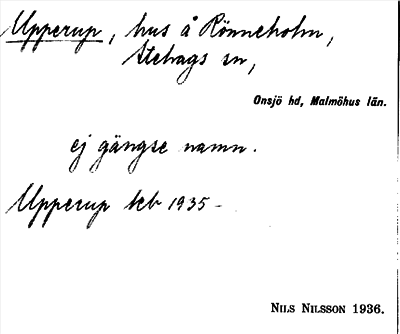 Upperup, hus å Rönneholm,
Stehags sn,
Onsjö hd, Malmöhus län.
ej gängse namn.
Upperup kb 1935 -
NILS NILSSON 1936.